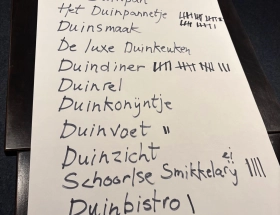 Duinpan
Het Duinpannetje
Duinsmaak
De luxe Duinkeuken
Duindiner
Duinrel
Duinkonijntje
Duinvoet
Duinzicht
ei
Schoorlse Smikkelarij
Duinbistro